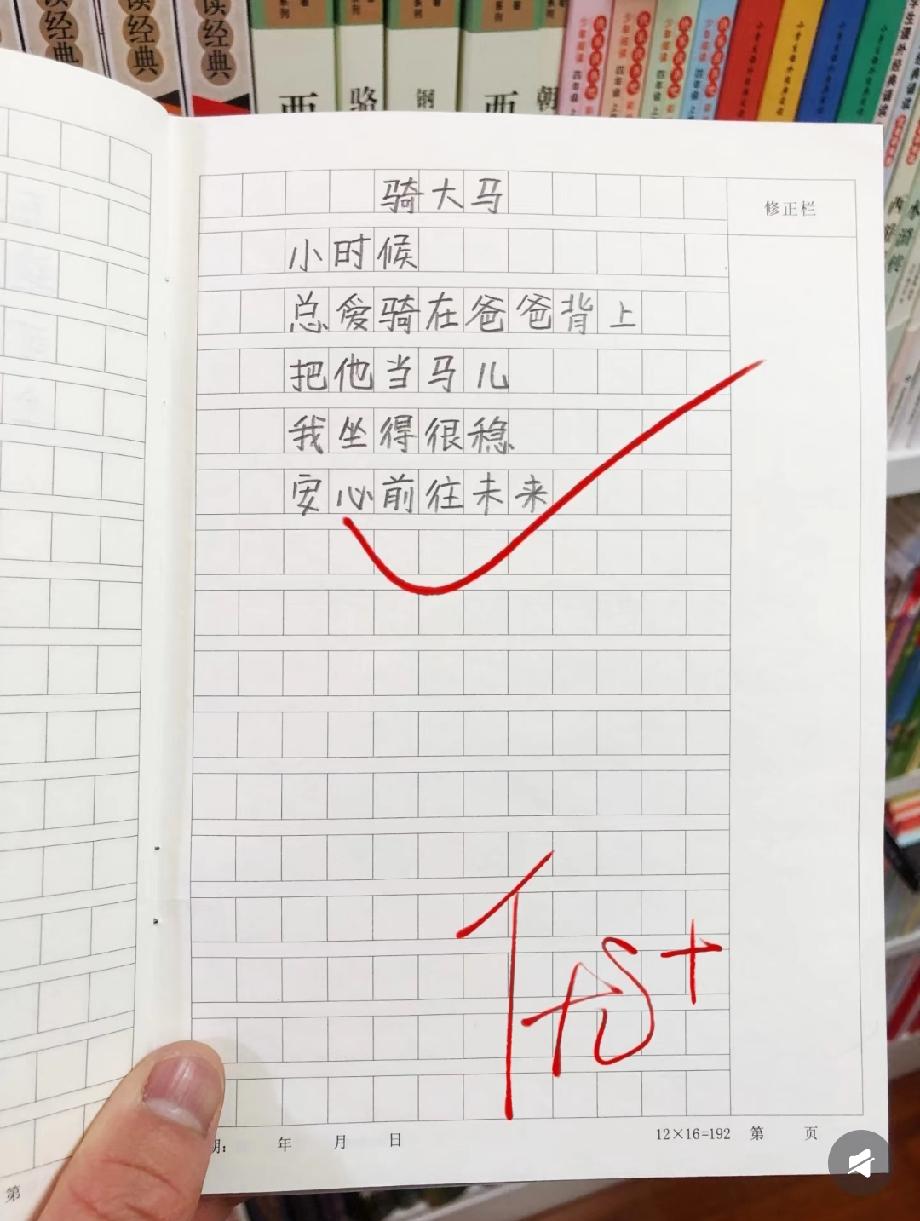 读经典
读经典
读经典
系列
西
骆
钢
西
朝
骑大马
修正栏
小时候
总爱骑在爸爸背上
把他当马儿
我坐得很稳
安心前往未来
优+
期: 年 月 日
12×16=192 第 页
第